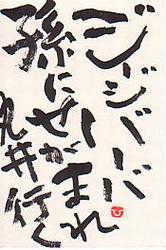 ジージバーバ
孫にせがまれ
丸井行く